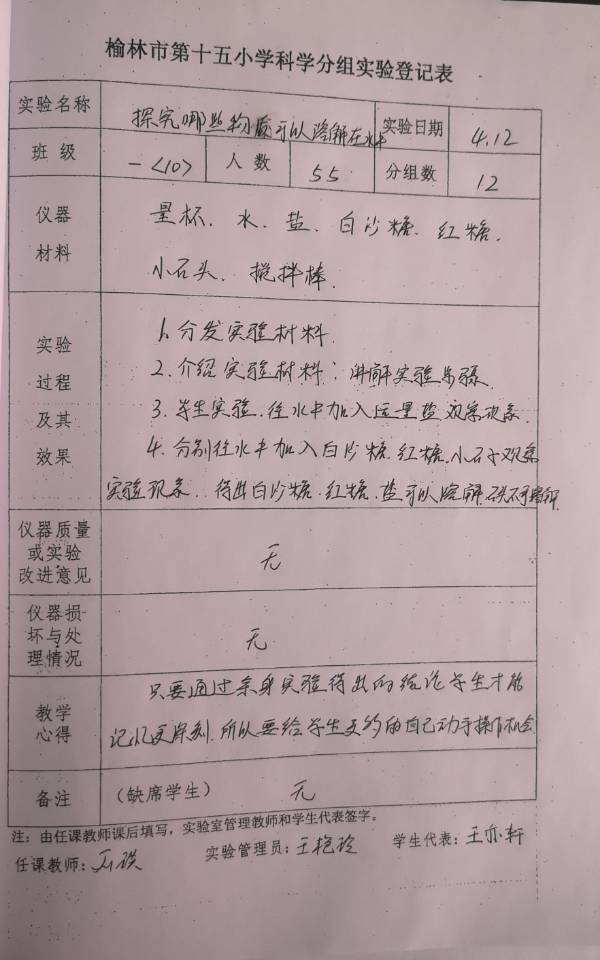 榆林市第十五小学科学分组实验登记表
实验名称 探究哪些物质可以溶解在水中 实验日期 4.12
班 级 一<10> 人 数 55 分组数 12
仪器
材料
量杯、水、盐、白沙糖、红糖、
小石头、搅拌棒.
实验
过程
及其
效果
1、分发实验材料.
2、介绍实验材料;讲解实验步骤.
3、学生实验.往水中加入适量盐观察现象.
4、分别往水中加入白沙糖.红糖.小石子观察
实验现象. 得出白沙糖.红糖.盐可以溶解.石头不可溶解.
仪器质量
或实验
改进意见
无
仪器损
坏与处
理情况
无
教学
心得
只要通过亲身实验得出的结论学生才能
记忆更深刻.所以要给学生更多的自己动手操作机会.
备注 (缺席学生) 无
注:由任课教师课后填写,实验室管理教师和学生代表签字。
任课教师: 实验管理员:王艳玲 学生代表:王亦轩